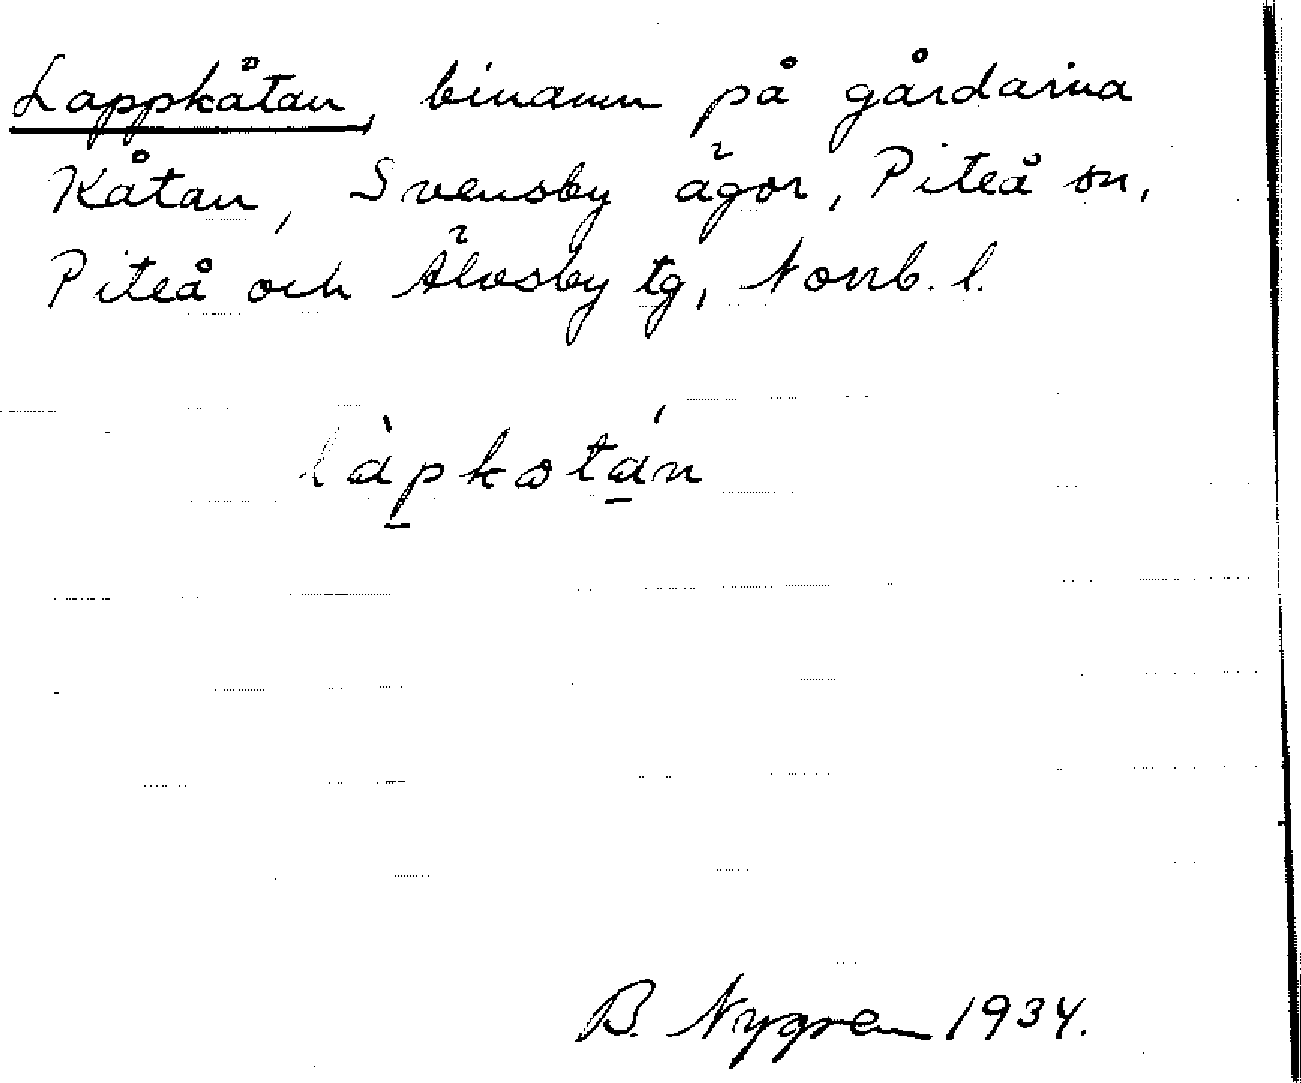 Lappkåtan, binamn på gårdarna
Kåtan, Svensby ägor, Piteå sn,
Piteå och Älvsby tg, Norrb. l.
làpkɷtán
B. Nygren 1934.